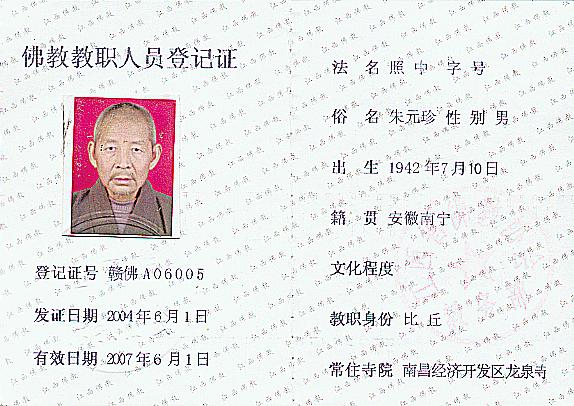 佛教教职人员登记证
登记证号 赣佛A06005
发证日期 2004年6月1日
有效日期 2007年6月1日
法名 照中 字号
俗名 朱元珍 性别 男
出生 1942年7月10日
籍贯 安徽南宁
文化程度
教职身份 比丘
常住寺院 南昌经济开发区龙泉寺